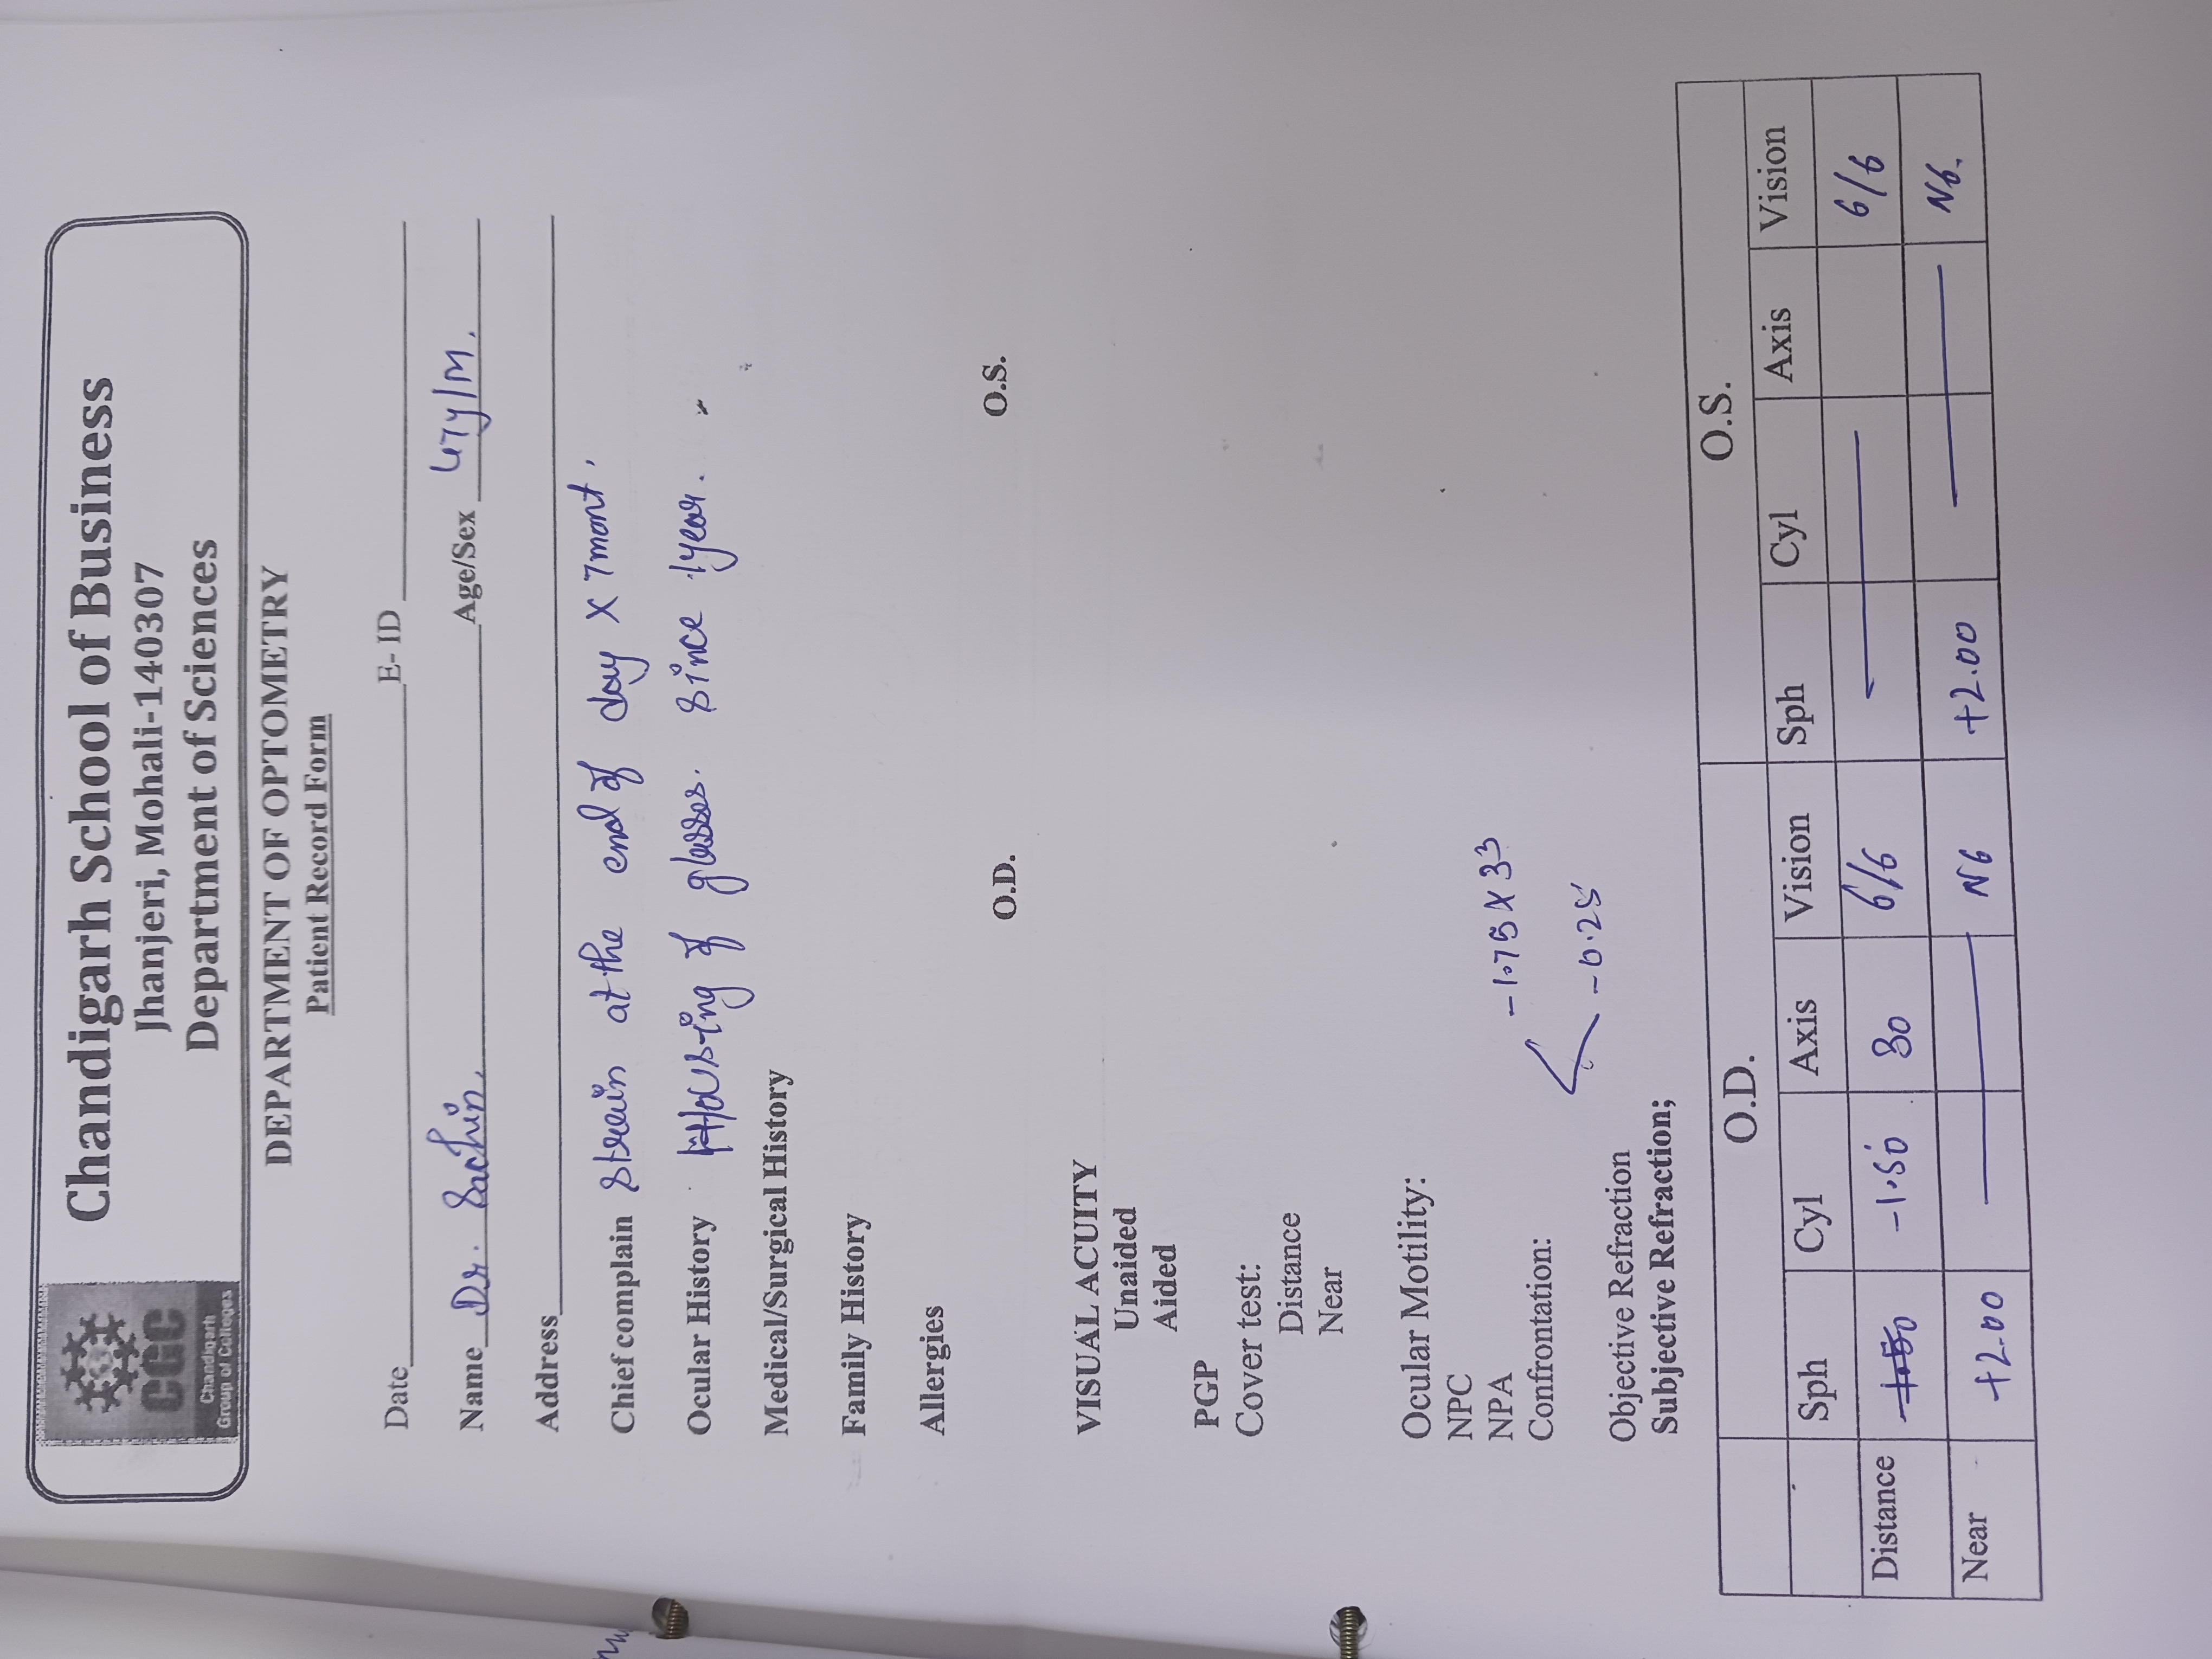 CGC
Chandigarh
Group of Colleges
Chandigarh School of Business
Jhanjeri, Mohali-140307
Department of Sciences
DEPARTMENT OF OPTOMETRY
Patient Record Form
Date E- ID
Name Dr. Sachin. Age/Sex 47y/M.
Address
Chief complain Strain at the end of day X 7mont.
Ocular History of glasses. Since 1year.
Medical/Surgical History
Family History
Allergies
O.D. O.S.
VISUAL ACUITY
Unaided
Aided
PGP
Cover test:
Distance
Near
Ocular Motility:
NPC
NPA
-1.75 X 33
Confrontation:
-0.25
Objective Refraction
Subjective Refraction;
O.D. O.S.
Sph Cyl Axis Vision Sph Cyl Axis Vision
Distance -1.50 30 6/6 6/6
Near +2.00 N6 +2.00 N6.